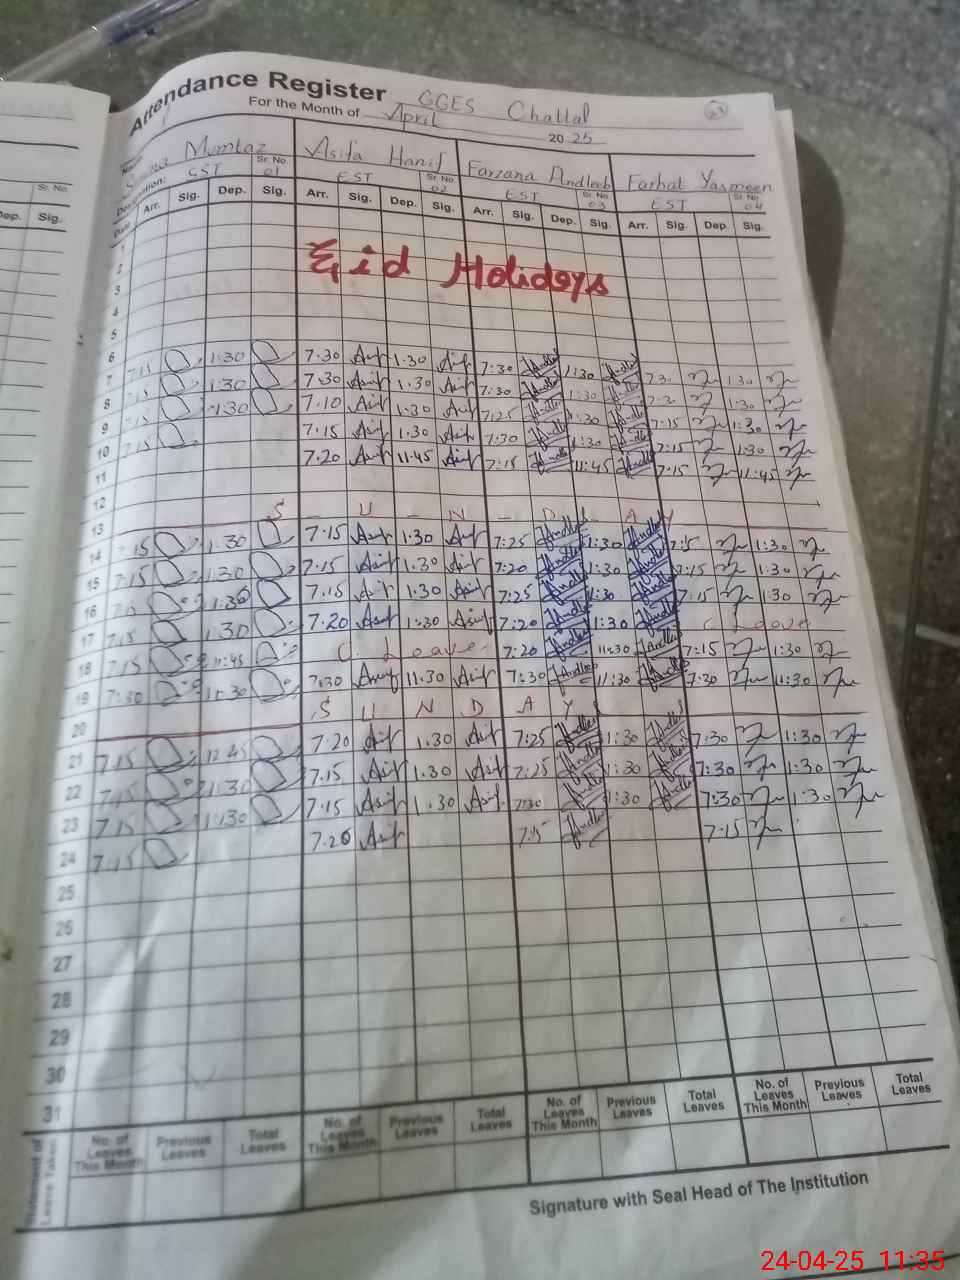 Attendance Register GGES Chattal
For the Month of April 2025
Mumtaz Asifa Hanif Farzana Andleeb Farhat Yasmeen
SST Sr. No. 01 EST Sr. No. 02 EST Sr. No. 03 EST Sr. No. 04
Arr. Sig. Dep. Sig. Arr. Sig. Dep. Sig. Arr. Sig. Dep. Sig. Arr. Sig. Dep. Sig.
Sr. No.
Dep. Sig.
1
2
Eid Holidays
3
4
5
6
7 7:15 1:30 7:30 Asif 1:30 Asif 7:30 Andleeb 1:30 Andleeb 7:30 1:30
8 7:15 1:30 7:30 Asif 1:30 Asif 7:30 Andleeb 1:30 Andleeb 7:30 1:30
9 7:15 1:30 7:10 Asif 1:30 Asif 7:25 Andleeb 1:30 Andleeb 7:15 1:30
10 7:15 7:15 Asif 1:30 Asif 7:30 Andleeb 1:30 Andleeb 7:15 1:30
11 7:20 Asif 11:45 Asif 7:15 Andleeb 11:45 Andleeb 7:15 11:45
12
13 S - U - N - D - A Y
14 7:15 1:30 7:15 Asif 1:30 Asif 7:25 Andleeb 1:30 Andleeb 7:15 1:30
15 7:15 1:30 7:15 Asif 1:30 Asif 7:20 Andleeb 1:30 Andleeb 7:15 1:30
16 7:15 1:30 7:15 Asif 1:30 Asif 7:25 Andleeb 1:30 Andleeb 7:15 1:30
17 7:15 1:30 7:20 Asif 1:30 Asif 7:20 Andleeb 1:30 Andleeb C. Leave
18 7:15 11:45 C. Leave 7:20 Andleeb 11:30 Andleeb 7:15 1:30
19 7:30 11:30 7:30 Asif 11:30 Asif 7:30 Andleeb 11:30 Andleeb 7:30 11:30
20 S U N D A Y
21 7:15 12:45 7:20 Asif 1:30 Asif 7:25 Andleeb 1:30 Andleeb 7:30 1:30
22 7:15 1:30 7:15 Asif 1:30 Asif 7:25 Andleeb 1:30 Andleeb 7:30 1:30
23 7:15 1:30 7:15 Asif 1:30 Asif 7:30 Andleeb 1:30 Andleeb 7:30 1:30
24 7:15 7:20 Asif 7:15 Andleeb 7:15
25
26
27
28
29
30
31
Statement of Leave Taken No. of Leaves This Month Previous Leaves Total Leaves No. of Leaves This Month Previous Leaves Total Leaves No. of Leaves This Month Previous Leaves Total Leaves No. of Leaves This Month Previous Leaves Total Leaves
Signature with Seal Head of The Institution
24-04-25 11:35